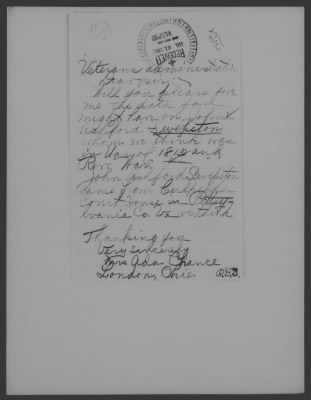 RECEIVED
Veterans administration
Dear sir:
Will you please give
me the data for
on John
Ashford Swepston
whom we think was
in War of 1812 and
Rev. War.
John Ashford Swepston
came from Culpeper
Court house in
Co. Va
Thanking you
Very sincerely
Mrs Ada Chance
London, Ohio